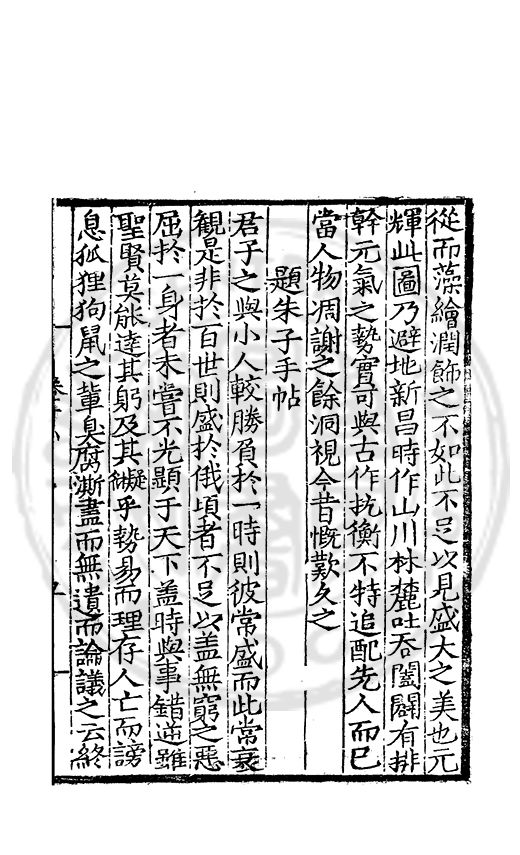 從而藻繪潤飾之不如此不足以見盛大之美也元
輝此圖乃避地新昌時作山川林麓吐吞闔闢有排
幹元氣之勢實可與古作抗衡不特追配先人而已
當人物凋謝之餘洞視今昔慨歎久之
題朱子手帖
君子之與小人較勝負於一時則彼常盛而此常衰
觀是非於百世則盛於俄頃者不足以蓋無窮之惡
屈於一身者未嘗不光顯于天下蓋時與事錯迕雖
聖賢莫能達其躬及其
乎勢易而理存人亡而謗
息狐狸狗鼠之輩臭腐澌盡而無遺而論議之云終